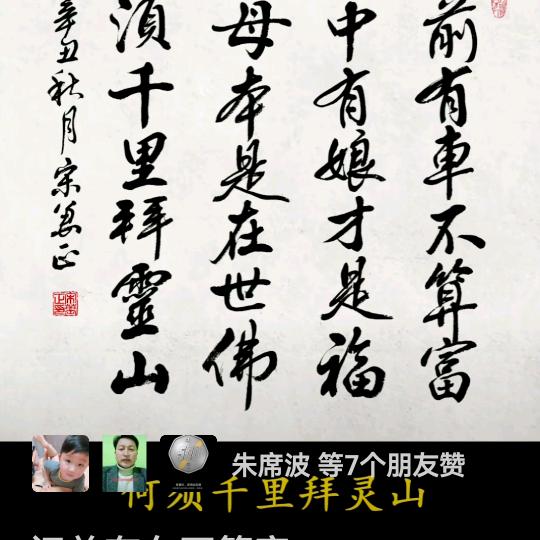 前有車不算富
中有娘才是福
母本是在世佛
須千里拜靈山
辛丑秋月宗
朱席波 等7个朋友赞
何须千里拜灵山